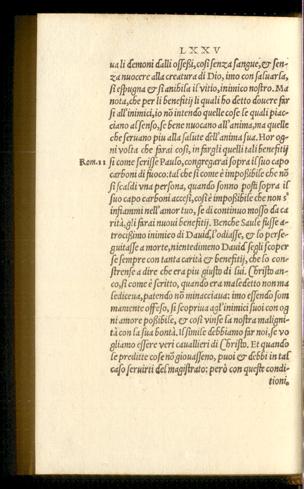 LXXV
uali demoni dalli ossessi, così senza sangue, & sen-
za nuocere alla creatura di Dio, imo con saluarla,
si espugna & si anihila il vitio, inimico nostro. Ma
nota, che per li benefitij li quali ho detto douere far
si all'inimici, io nõ intendo quelle cose le quali piac-
ciano al senso, se bene nuocano all'anima, ma quelle
che seruano piu alla salute dell'anima sua. Hor og-
ni volta che farai così, in fargli quelli tali benefitij
Rom. 11 si come scrisse Paulo, congregarai sopra il suo capo
carboni di fuoco: tal che si come è impossibile che nõ
si scaldi vna persona, quando sonno posti sopra il
suo capo carboni accesi, così è impossibile che non s'
infiammi nell'amor tuo, se di continuo mosso da ca
rità, gli farai nuoui benefitij. Benche Saule fusse a-
trocissimo inimico di Dauid, l'odiasse, & lo perse-
guitasse a morte, nientedimeno Dauid segli scoper
se sempre con tanta carità & benefitij, che lo con-
strense a dire che era piu giusto di lui. Christo an-
co, si come è scritto, quando era maledetto non ma
lediceua, patendo nõ minacciaua: imo essendo som
mamente offeso, si scopriua agl'inimici suoi con og
ni amore possibile, & così vinse la nostra maligni-
tà con la sua bontà. Il simile debbiamo far noi, se vo
gliamo essere veri cauallieri di Christo. Et quando
le preditte cose nõ giouasseno, puoi & debbi in tal
caso seruirti del magistrato: però con queste condi-
tioni,